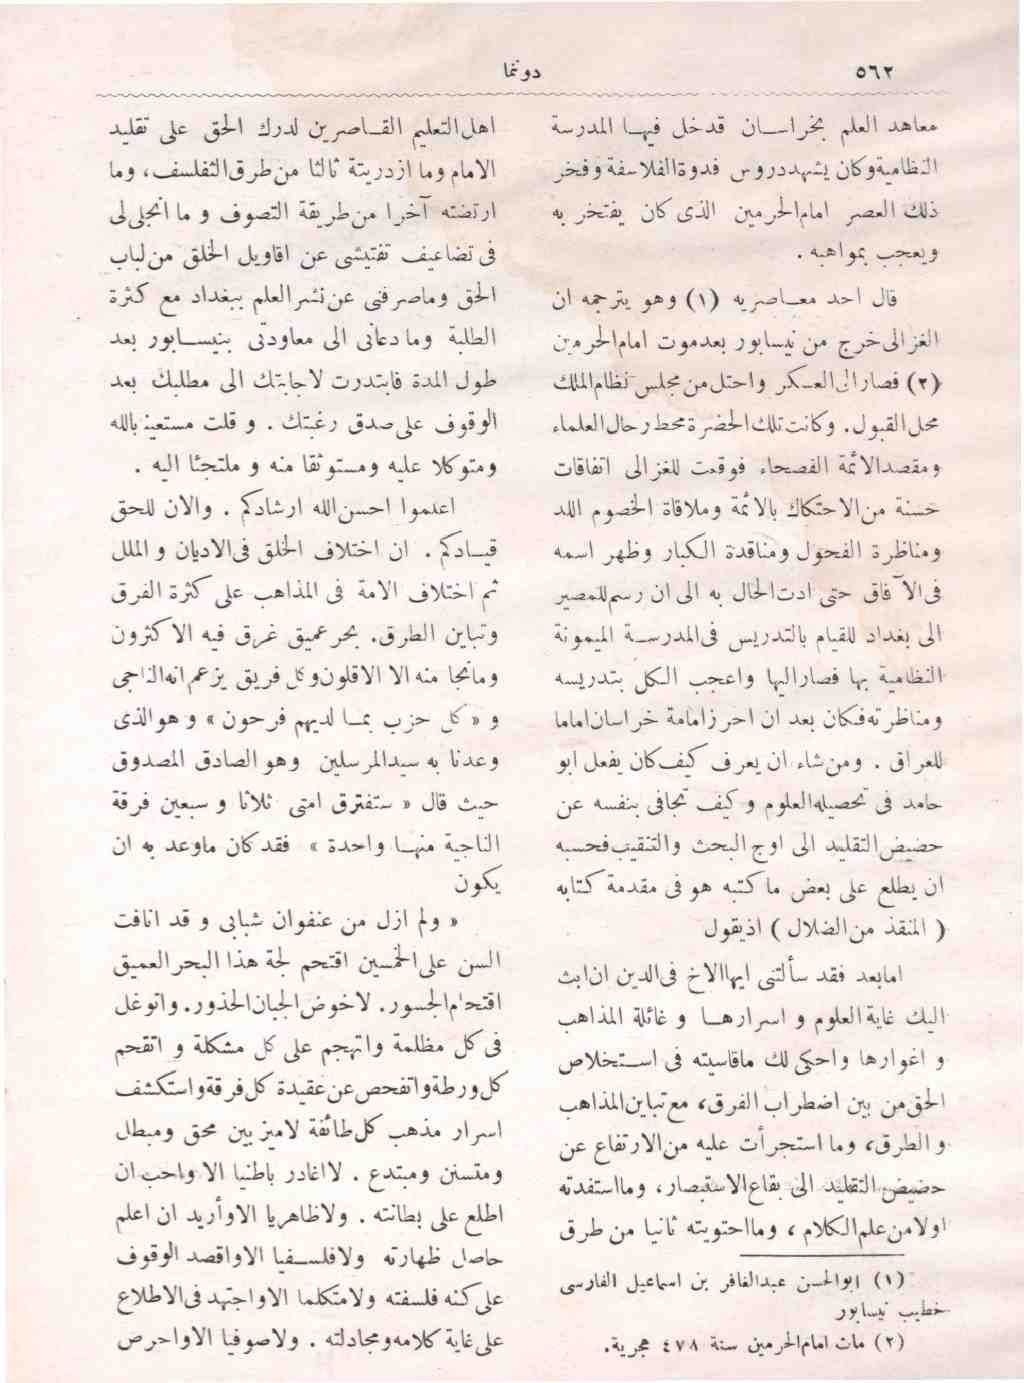 ٥٦٢
دونما
معاهد العلم بخراسان قد دخل فيها المدرسة
النظامية وكان يشهد دروس قدوة الفلاسفة وفخر
ذلك العصر امام الحرمين الذى كان يفتخر به
ويعجب بمواهبه .
قال احد معاصريه (١) وهو يترجمه ان
الغزالى خرج من نيسابور بعد موت امام الحرمين
(٢) فصار الى العسكر واحتل من مجلس نظام الملك
محل القبول. وكانت تلك الحضرة محط رحال العلماء
ومقصد الائمة الفصحاء فوقعت للغزالى اتفاقات
حسنة من الاحتكاك بالائمة وملاقاة الخصوم اللد
ومناظرة الفحول ومناقدة الكبار وظهر اسمه
فى الآفاق حتى ادت الحال به الى ان رسم للمصير
الى بغداد للقيام بالتدريس فى المدرسة الميمونة
النظامية بها فصار اليها واعجب الكل بتدريسه
ومناظرته فكان بعد ان احرز امامة خراسان اماما
للعراق . ومن شاء ان يعرف كيف كان يفعل ابو
حامد فى تحصيله العلوم و كيف تجافى بنفسه عن
حضيض التقليد الى اوج البحث والتنقيب فحسبه
ان يطلع على بعض ما كتبه هو فى مقدمة كتابه
( المنقذ من الضلال ) اذيقول
امابعد فقد سألتنى ايها الاخ فى الدين ان ابث
اليك غاية العلوم و اسرارها و غائلة المذاهب
و اغوارها واحكى لك ماقاسيته فى استخلاص
الحق من بين اضطراب الفرق، مع تباين المذاهب
و الطرق، وما استجرأت عليه من الارتفاع عن
حضيض التقليد الى بقاع الاستبصار، وما استفدته
اولا من علم الكلام ، وما احتويته ثانيا من طرق
(١) ابوالحسن عبدالغافر بن اسماعيل الفارسى
خطيب نيسابور
(٢) مات امام الحرمين سنة ٤٧٨ هجرية.
اهل التعليم القاصرين لدرك الحق على تقليد
الامام وما ازدريتة ثالثا من طرق التفلسف، وما
ارتضته آخرا من طريقة التصوف و ما انجلى لى
فى تضاعيف تفتيشى عن اقاويل الخلق من لباب
الحق وماصرفنى عن نشر العلم ببغداد مع كثرة
الطلبة وما دعانى الى معاودتى بنيسابور بعد
طول المدة فابتدرت لاجابتك الى مطلبك بعد
الوقوف على صدق رغبتك . و قلت مستعينا بالله
ومتوكلا عليه ومستوثقا منه و ملتجئا اليه .
اعلموا احسن الله ارشادكم . والان للحق
قيادكم . ان اختلاف الخلق فى الاديان و الملل
ثم اختلاف الامة فى المذاهب على كثرة الفرق
وتباين الطرق. بحر عميق غرق فيه الاكثرون
ومانجا منه الا الاقلون وكل فريق يزعم انه الناجى
و « كل حزب بما لديهم فرحون » و هو الذى
وعدنا به سيد المرسلين وهو الصادق المصدوق
حيث قال « ستفترق امتى ثلاثا و سبعين فرقة
الناجية منها واحدة » فقد كان ماوعد به ان
يكون
« ولم ازل من عنفوان شبابى و قد انافت
السن على الخمسين اقتحم لجة هذا البحر العميق
اقتحام الجسور. لاخوض الجبان الحذور. واتوغل
فى كل مظلمة واتهجم على كل مشكلة و اتقحم
كل ورطة واتفحص عن عقيدة كل فرقة واستكشف
اسرار مذهب كل طائفة لاميز بين محق ومبطل
ومتسنن ومبتدع . لا اغادر باطنيا الا واحب ان
اطلع على بطانته . ولاظاهريا الا وأريد ان اعلم
حاصل ظهارته ولافلسفيا الا واقصد الوقوف
على كنه فلسفته ولا متكلما الا واجتهد فى الاطلاع
على غاية كلامه ومجادلته . ولاصوفيا الا واحرص